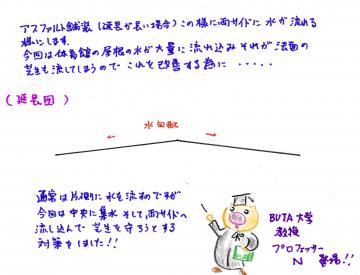 アスファルト舗装（延長が長い場合）この様に両サイドに水が流れる
様にします。
今回は体育館の屋根の水が大量に流れ込みそれが法面の
芝生も流してしまうのでこれを改善する為に・・・・・
（延長図）
← 水勾配 →
通常は片側りに水を流すのですが
今回は中央に集水そして、両サイドへ
流し込んで芝生を守ろうとする
対策をしました!!
BUTA大学
教授
プロフェッサー
N 登場!!